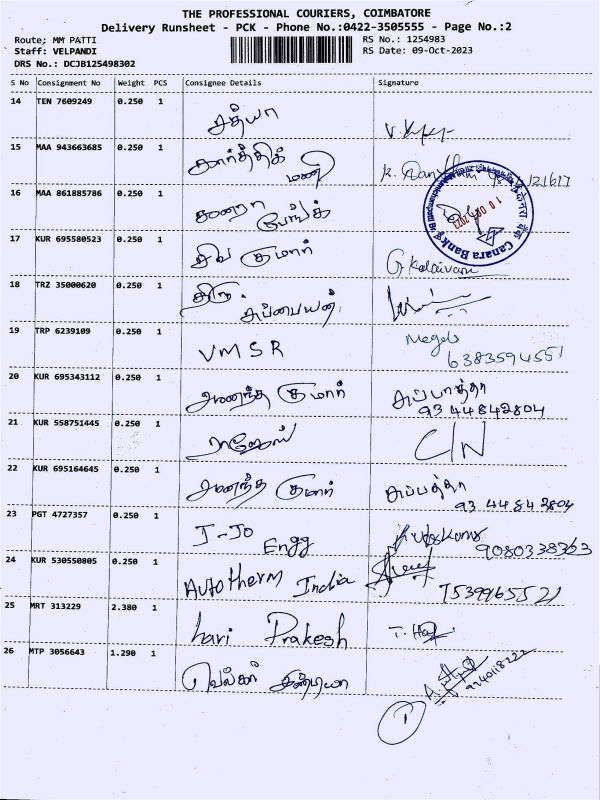 THE PROFESSIONAL COURIERS, COIMBATORE
Delivery Runsheet - PCK - Phone No.:0422-3505555 - Page No.:2
Route; MM PATTI RS No.: 1254983
Staff: VELPANDI RS Date: 09-Oct-2023
DRS No.: DCJB125498302
S No Consignment No Weight PCS Consignee Details Signature
14 TEN 7609249 0.250 1 சத்யா
15 MAA 943663685 0.250 1 கார்த்திக்
மணி
16 MAA 861885786 0.250 1 கனரா
பேங்க்
Canara Bank
17 KUR 695580523 0.250 1 சிவ குமார் G Kalaivani
18 TRZ 35000620 0.250 1 திரு.
சுப்பையன்
19 TRP 6239109 0.250 1 VMSR
6383594551
20 KUR 695343112 0.250 1 ஆனந்த குமார் சுப்பாத்தா
9344842804
21 KUR 558751445 0.250 1 ராஜேஸ் C/N
22 KUR 695164645 0.250 1 ஆனந்த குமார் சுப்பத்தா
9344842804
23 PGT 4727357 0.250 1 J-Jo
Engg
9080338363
24 KUR 530550805 0.250 1 Autotherm India
7539965521
25 MRT 313229 2.380 1 hari Prakesh
26 MTP 3056643 1.290 1 வெல்கர் இண்டியா
9240118222